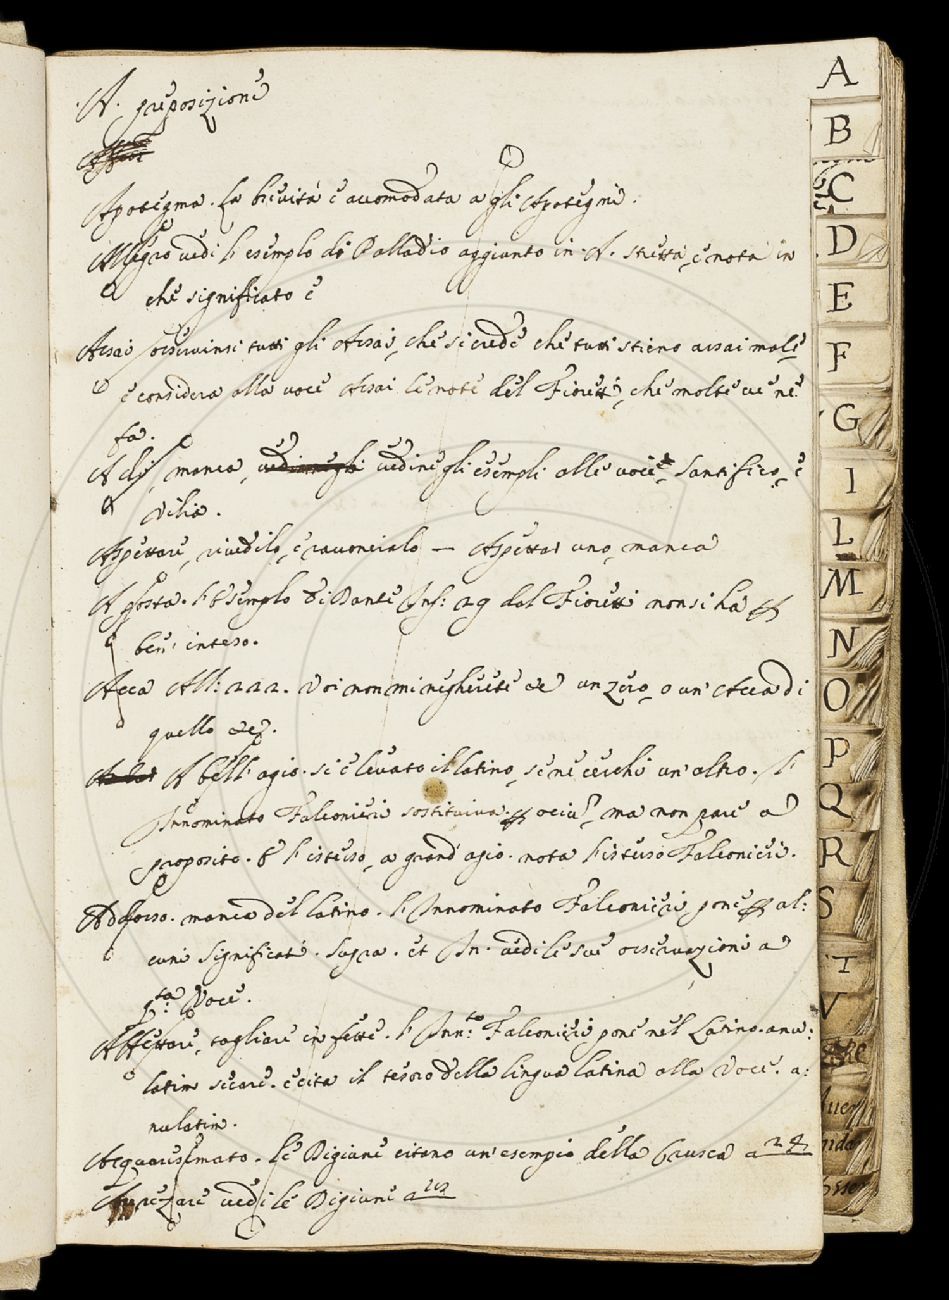 A. preposizione
Apotegma. La brevità è accomodata a gli Apotegmi.
Allegro vedi l'esemplo di Palladio aggiunto in A. stretta, e nota in
che significato è
Assai osservinsi tutti gli Assai, che si crede che tutti stieno assai male,
e considera alla voce Assai le note del Fioretti, che molte ve ne
fa.
manca, vedine gli esempli alle voci Santifico, e
Vilia.
Aspettare, rivedilo, e racconcialo — Aspettar uno, manca
A posta. l'Esemplo di Dante Inf: 29 del Fioretti non si ha p
ben' inteso.
Acca All: 222. Voi non mi negherete &c un zero, o un' Acca di
quello &c.
A bell' agio. si è levato il latino, se ne cerchi un' altro. l'
Innominato Falconieri sostituiva ma non pare a
proposito. E l'istesso, a grand' agio. nota l'istesso Falconieri.
Addosso. manca del latino. l'Innominato Falconieri pone p al:
cuni significati. supra. et In. vedi le sue osservazioni a
q.ta Voce.
Affettare, tagliare in fette. l'Inn.to Falconieri pone nel Latino. anu:
latim secare. e cita il tesoro della lingua latina alla Voce. a:
nulatim.
Acquarisimato. le Digiune citano un' esempio della Crusca a 24
vedi le Digiune a
A
B
C
D
E
F
G
I
L
M
N
O
P
Q
R
S
T
V